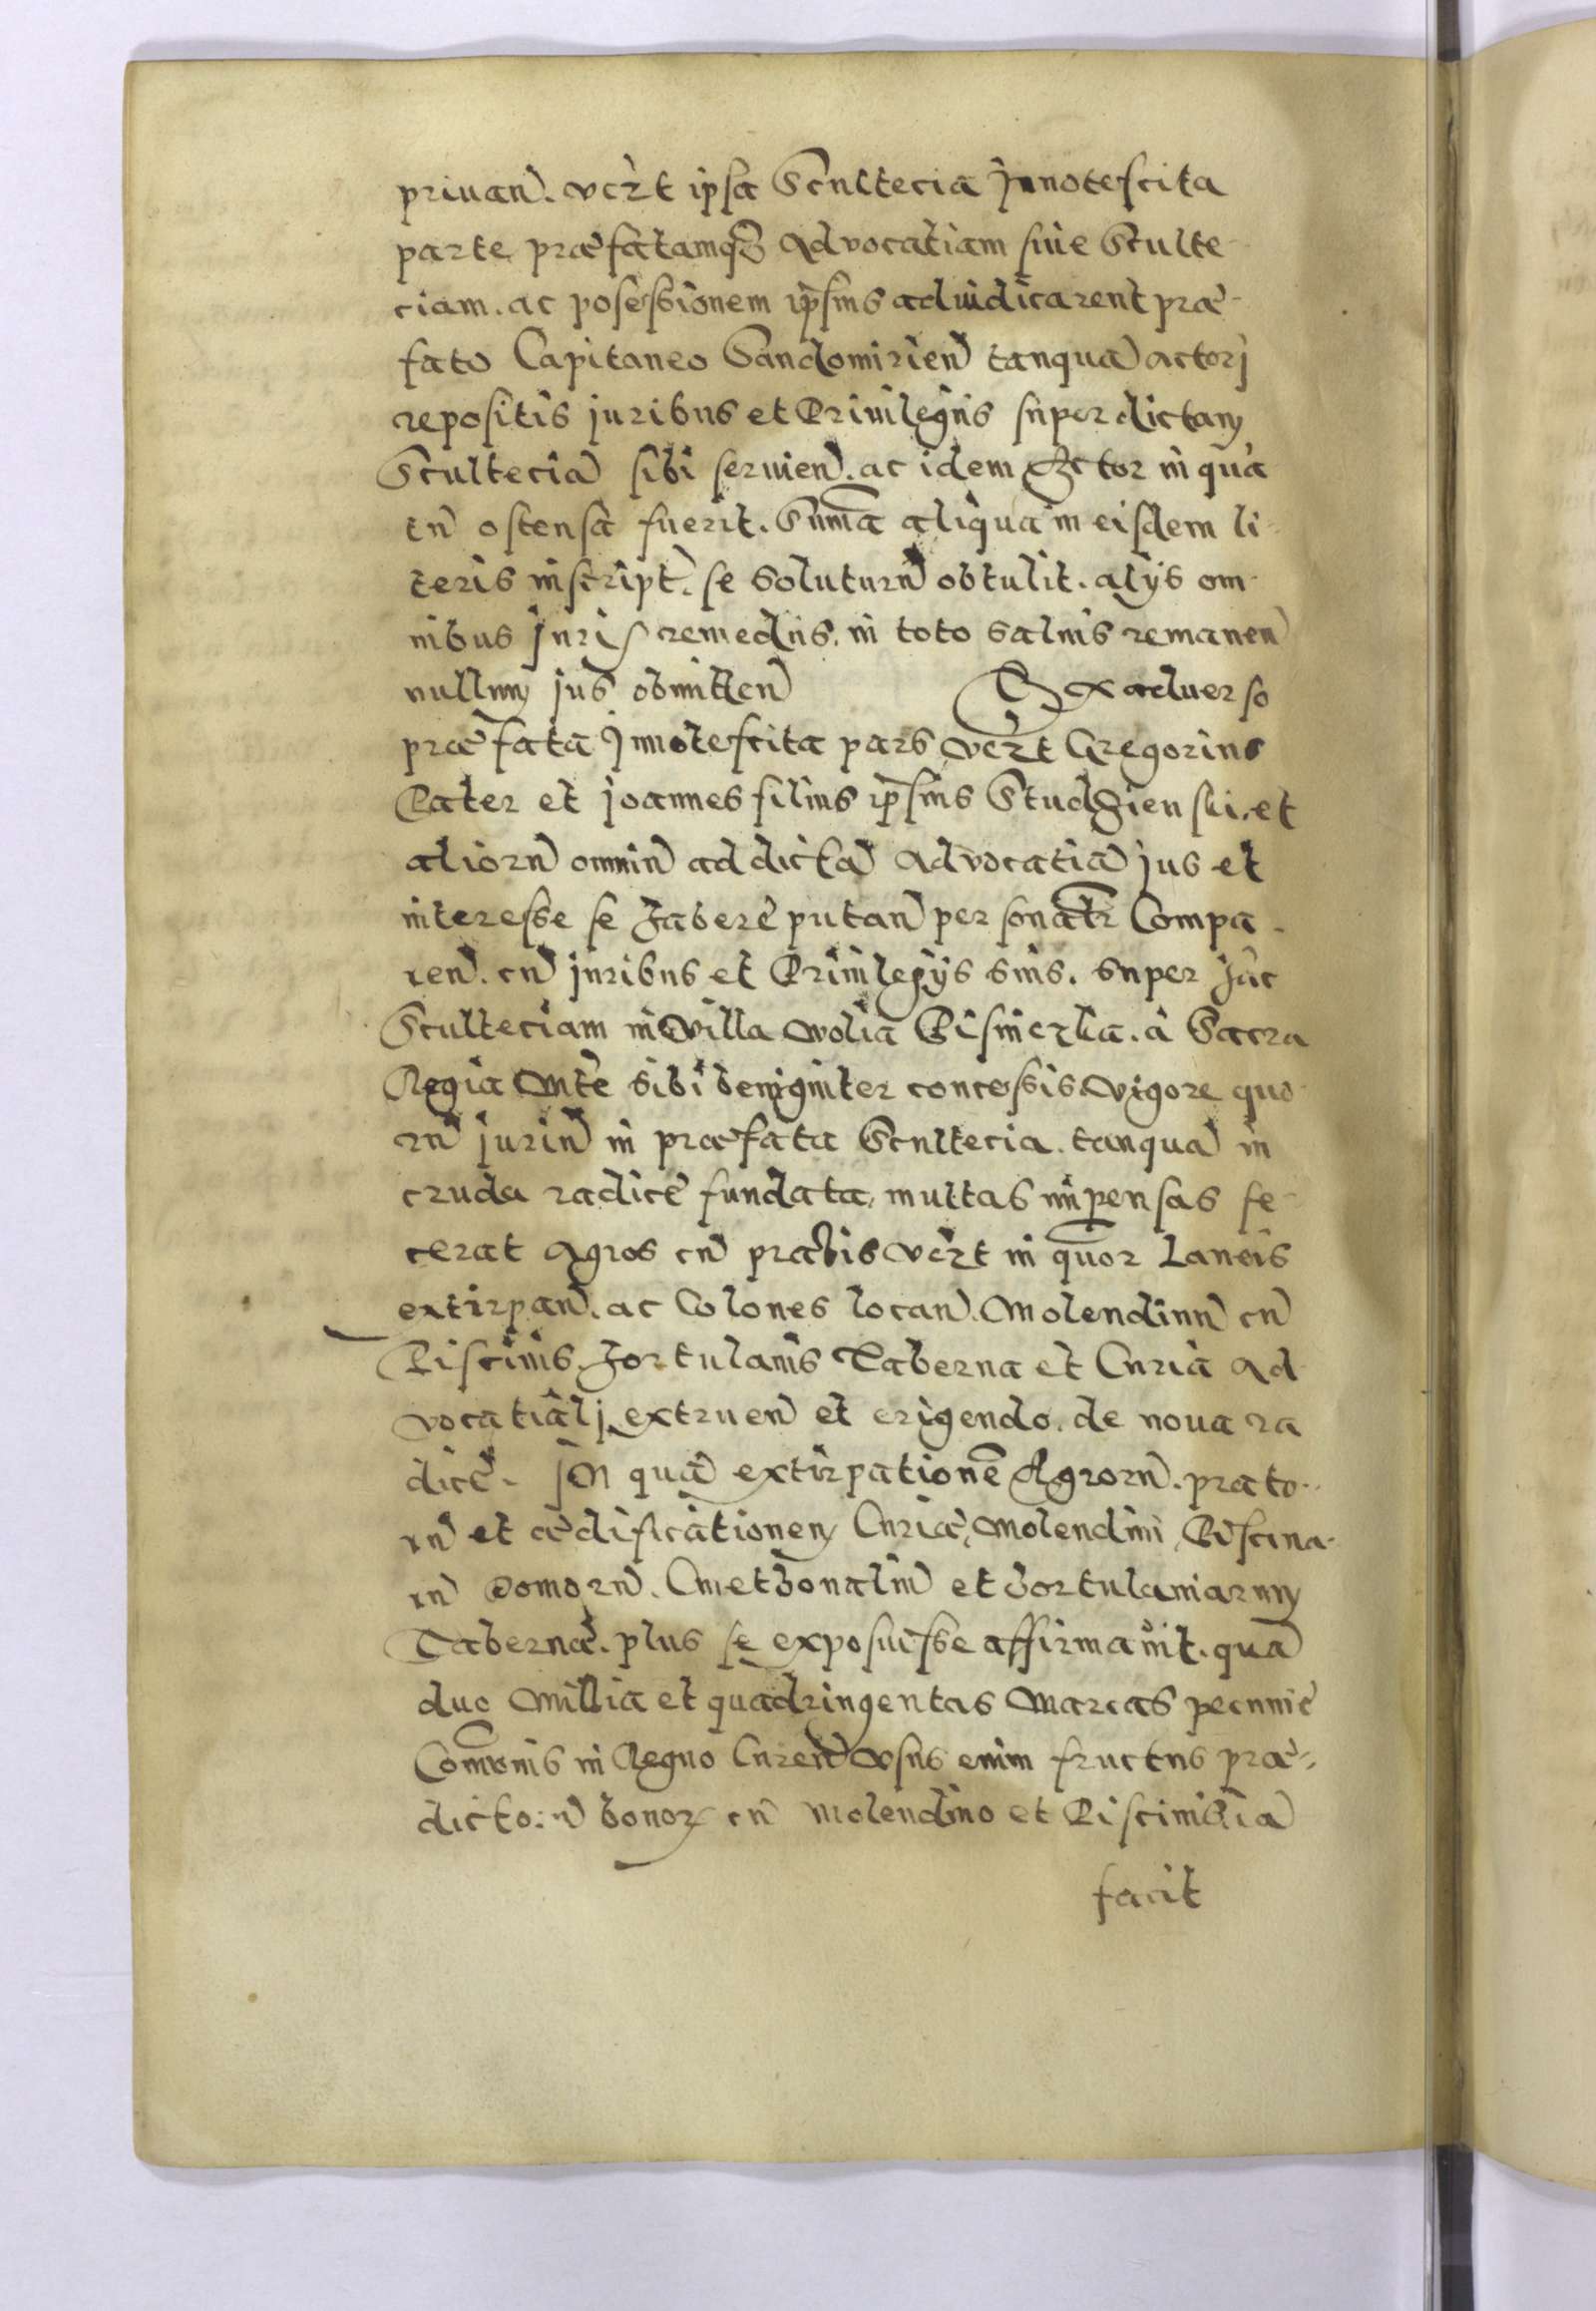 priuan. vezt ipsa Scultecia Innotescita
parte præfatamq3 Aduocatiam siue Sculte-
ciam. ac posessionem ipsius adiudicarent præ-
fato Capitaneo Sandomirien tanquā actorj
repositis juribus et Priuilegiis super dictam
Scultecia sibi seruien. ac idem Actor in quā
tn ostensā fuerit. Sum̄a aliquā in eisdem li-
teris inscript. se soluturū obtulit. alijs om-
nibus Juris remediis. in toto saluis remanen
nullum jus obmitten Ex aduerso
præfata Innotescita pars vezt Gregorius
Pater et joannes filius ipsius Studzienski. et
aliorū omniū ad dictā Aduocatiā jus et
interesse se habere putan personatr Compa-
ren. cū juribus et Priuilegijs suis. super hac
Sculteciam in Villa Wolia a Sacra
Regia Mte sibi benigniter concessis vigore quo-
rū juriū in præfata Scultecia. tanquā in
cruda radice fundata, multas impensas fe-
cerat Agros cū pratis vezt in quor Laneis
extirpan. ac Colones locan. Molendinū cū
Piscinis. hortulanis Taberna et Curia Ad-
uocatialj extruen et erigendo. de noua ra
dice. jn quā extirpationē Agrorū. prato-
rū et ædificationem Curiæ, Molendini Piscina-
rū Domorū. Cmethonaliū et hortulaniarum
Tabernæ. plus se exposuisse affirmauit. quā
duo Millia et quadringentas Marcas pecuniē
Com̄unis in Regno Curen Vsus enim fructus præ-
dictorū bonor cū Molendino et Piscinis iā
facit